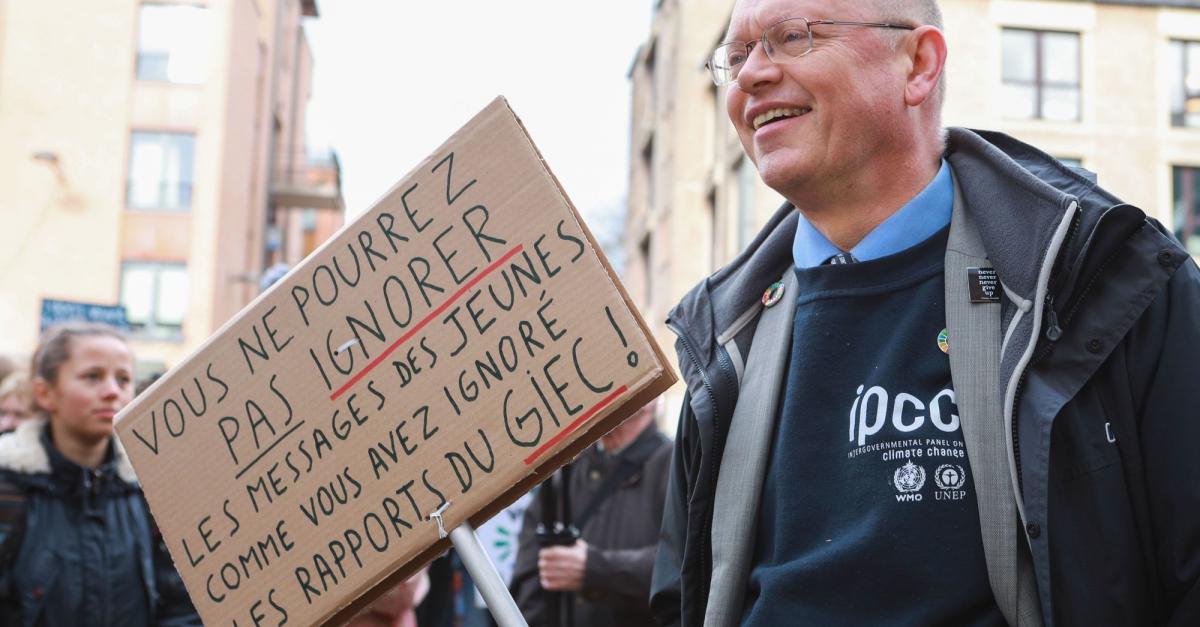 VOUS NE POURREZ
PAS IGNORER
LES MESSAGES DES JEUNES
COMME VOUS AVEZ IGNORÉ
LES RAPPORTS DU GIEC !
never
never
never
give
up
ipcc
INTERGOVERNMENTAL PANEL ON
climate change
WMO
UNEP